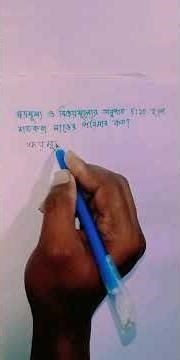 ক্রয়মূল্য ও বিক্রয়মূল্যের অনুপাত ৫:১০ হলে
শতকরা লাভের পরিমান কত?
ক্রয় মূ